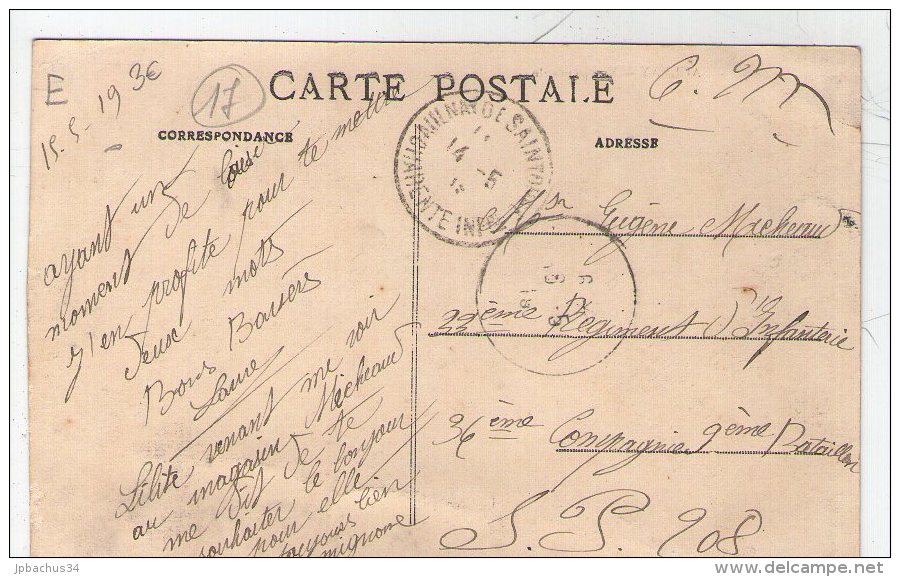 E
17
15-5-1936
CARTE POSTALE
C. M
CORRESPONDANCE
ADRESSE
ayant un
moment de loisir
j'en profite pour te mettre
deux mots
Bons Baisers
Laure
Lilite venant me voir
au magasin Micheaud
me dit de te
souhaiter le bonjour
pour elle
toujours bien
mignonne
14 -5
CHARENTE INFRE
Mr Eugène Micheaud
22ème Régiment d'Infanterie
36ème Compagnie 9ème Bataillon
S. P. 208
jpbachus34
delcampe.net